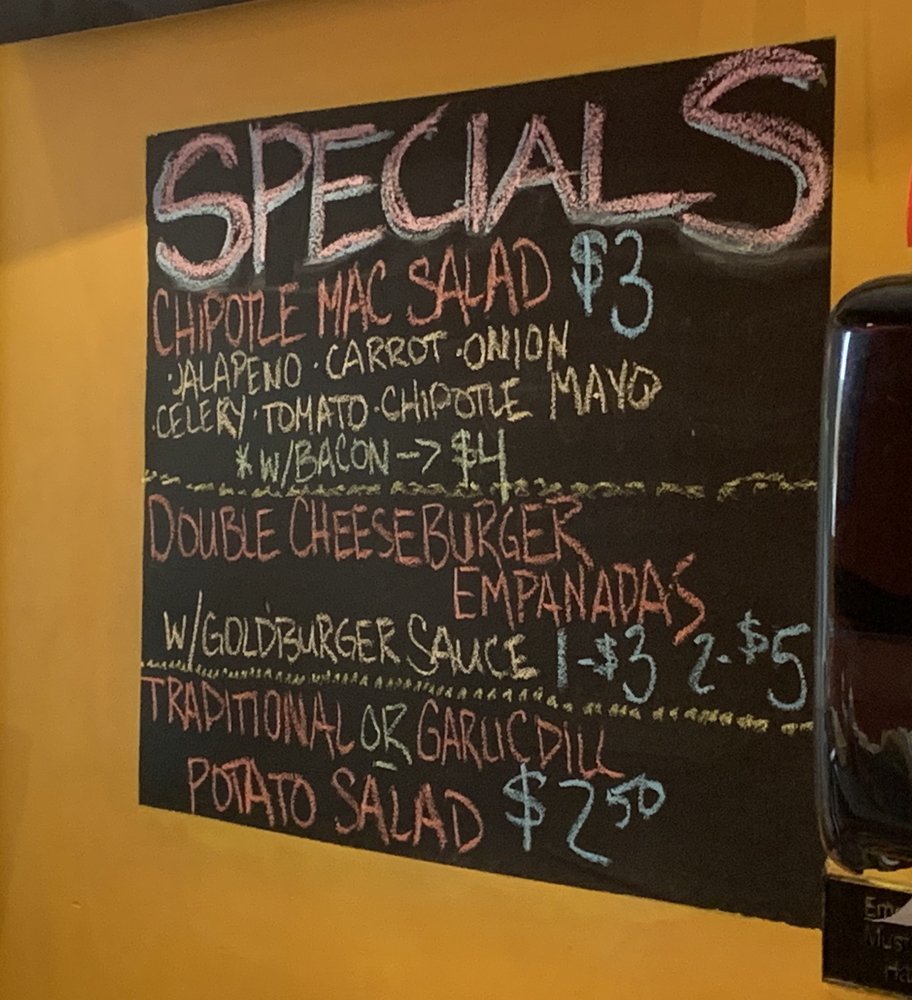 SPECIALS
CHIPOTLE MAC SALAD $3
·JALAPENO·CARROT·ONION
·CELERY·TOMATO·CHIPOTLE MAYO
*W/BACON -> $4
DOUBLE CHEESEBURGER
EMPANADAS
W/GOLDBURGER SAUCE 1-$3 2-$5
TRADITIONAL OR GARLIC DILL
POTATO SALAD $2.50